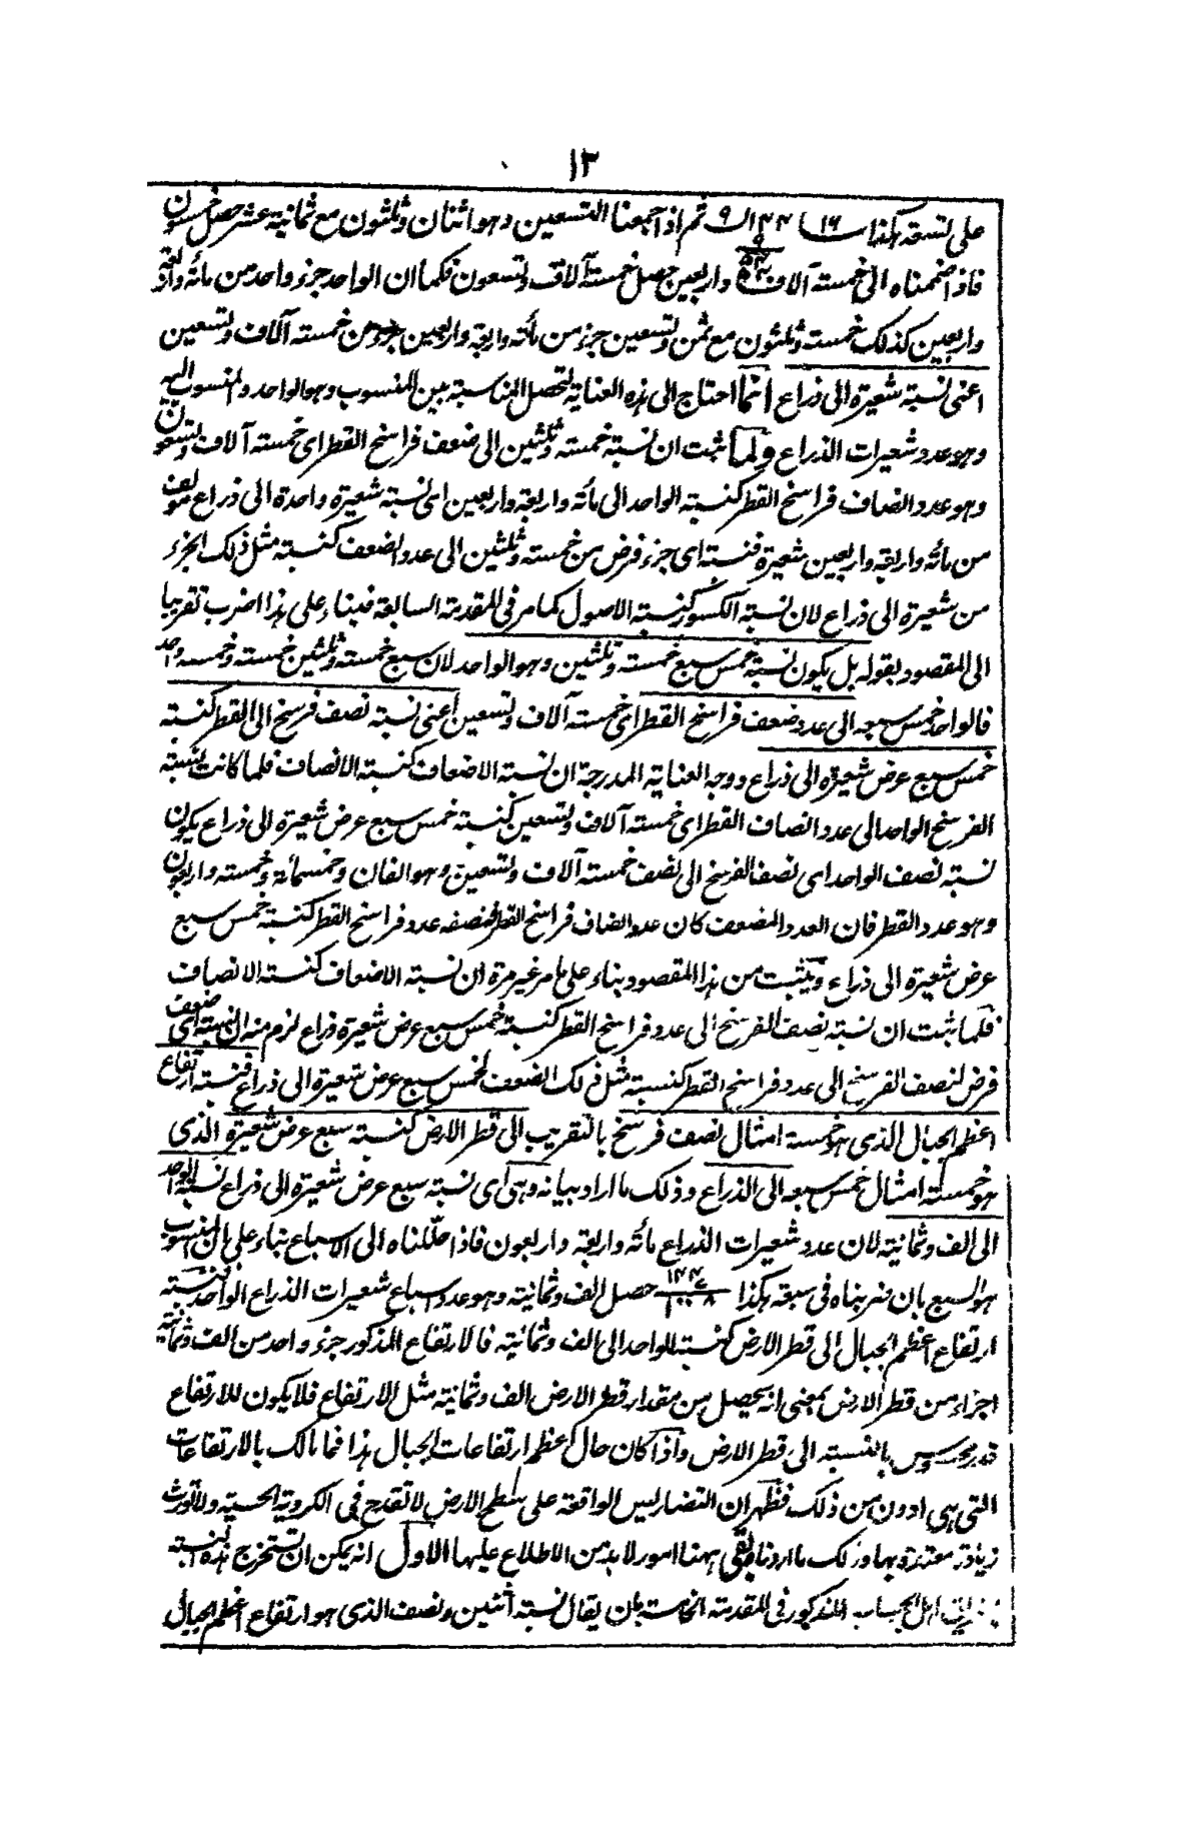 ١٣
على تسعة هكذا ثم اذا جمعنا التسعين وهو اثنان وثلثون مع ثمانية عشر حصل خمسون
فاذا ضممناه الى خمسة آلاف واربعين حصل خمسة آلاف وتسعون فكما ان الواحد جزء واحد من مأته واربعة
واربعين كذلك خمسة وثلثون مع ثمن وتسعين جزء من مأته واربعة واربعين جزء من خمسة آلاف وتسعين
اعنى نسبة شعيرة الى ذراع انما احتاج الى هذه العناية لتحصل المناسبة بين المنسوب وهو الواحد والمنسوب اليه
وهو عدد شعيرات الذراع ولما ثبت ان نسبة خمسة وثلثين الى ضعف فراسخ القطر اى خمسة آلاف وتسعون
وهو عدد انصاف فراسخ القطر كنسبة الواحد الى مأته واربعة واربعين اى نسبة شعيرة واحدة الى ذراع مولف
من مأته واربعة واربعين شعيرة فنسبة اى جزء فرض من خمسة وثلثين الى عدد الضعف كنسبة مثل ذلك الجزء
من شعيرة الى ذراع لان نسبة الكسور كنسبة الاصول كما مر فى المقدمة السابعة فبناء على هذا اضرب تقريبا
الى المقصود بقوله بل يكون نسبة خمس سبع خمسة وثلثين وهو الواحد لان سبع خمسة وثلثين خمسة وخمسه واحد
فالواحد خمس سبعه الى عدد ضعف فراسخ القطر اى خمسة آلاف وتسعين اعنى نسبة نصف فرسخ الى القطر كنسبة
خمس سبع عرض شعيرة الى ذراع ووجه العناية المدرجة ان نسبة الاضعاف كنسبة الانصاف فلما كانت نسبة
الفرسخ الواحد الى عدد انصاف القطر اى خمسة آلاف وتسعين كنسبة خمس سبع عرض شعيرة الى ذراع يكون
نسبة نصف الواحد اى نصف الفرسخ الى نصف خمسة آلاف وتسعين وهو الفان وخمسمأة وخمسة واربعون
وهو عدد القطر فان العدد المضعف كان عدد انصاف فراسخ القطر فنصفه عدد فراسخ القطر كنسبة خمس سبع
عرض شعيرة الى ذراع ويثبت من هذا المقصود بناء على ما مر غير مرة ان نسبة الاضعاف كنسبة الانصاف
فلما ثبت ان نسبة نصف الفرسخ الى عدد فراسخ القطر كنسبة خمس سبع عرض شعيرة ذراع لزم منه ان نسبة اى ضعف
فرض لنصف الفرسخ الى عدد فراسخ القطر كنسبة مثل ذلك الضعف لخمس سبع عرض شعيرة الى ذراع فنسبة ارتفاع
اعظم الجبال الذى هو خمسة امثال نصف فرسخ بالتقريب الى قطر الارض كنسبة سبع عرض شعيرة الذى
هو خمسة امثال خمس سبعه الى الذراع وذلك ما اراد بيانه وهى اى نسبة سبع عرض شعيرة الى ذراع نسبة الواحد
الى الف وثمانية لان عدد شعيرات الذراع مأته واربعة واربعون فاذا حللناه الى الاسباع بناء على ان المنسوب
هو السبع بان ضربناه فى سبعة هكذا ١٤٤ ٧ ١٠٠٨ حصل الف وثمانية وهو عدد اسباع شعيرات الذراع الواحد فنسبة
ارتفاع اعظم الجبال الى قطر الارض كنسبة الواحد الى الف وثمانية فالارتفاع المذكور جزء واحد من الف وثمانية
اجزاء من قطر الارض بمعنى انه يحصل من مقدار قطر الارض الف وثمانية مثل الارتفاع فلا يكون للارتفاع
قدر محسوس بالنسبة الى قطر الارض واذا كان حال اعظم ارتفاعات الجبال هذا فما بالك بالارتفاعات
التى هى ادون من ذلك فظهر ان التضاريس الواقعة على سطح الارض لا تقدح فى الكروية الحسية ولا تورث
زيادة معتدة بها وذلك ما اردناه بقى ههنا امور لا بد من الاطلاع عليها الاول انه يمكن ان تستخرج هذه النسبة
اهل الحساب المذكور فى المقدمة الخامسة بان يقال نسبة اثنين ونصف الذى هو ارتفاع اعظم الجبال